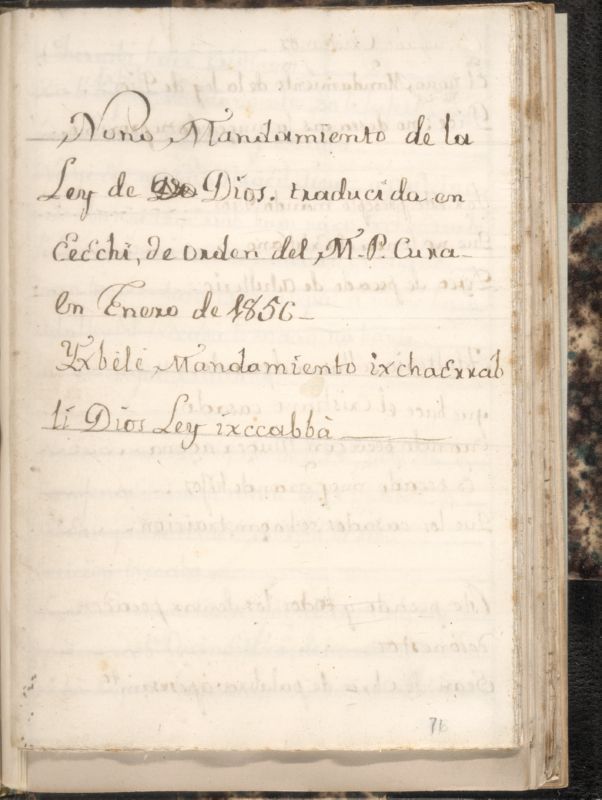 Nono Mandamiento de la
Ley de Dios. traducida en
Cecchi, de orden del M. P. Cura
en Enero de 1856
Yxbélé Mandamiento ixchacrrab
li Dios Ley ixccabbà
71